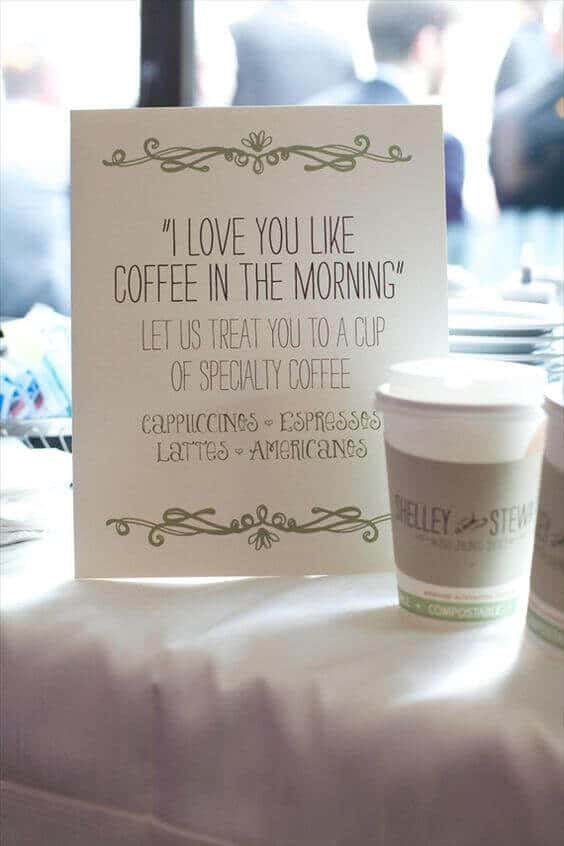 "I LOVE YOU LIKE
COFFEE IN THE MORNING"
LET US TREAT YOU TO A CUP
OF SPECIALTY COFFEE
CAPPUCCINOS ♥ ESPRESSOS
LATTES ♥ AMERICANOS
SHELLEY
COMPOSTABLE